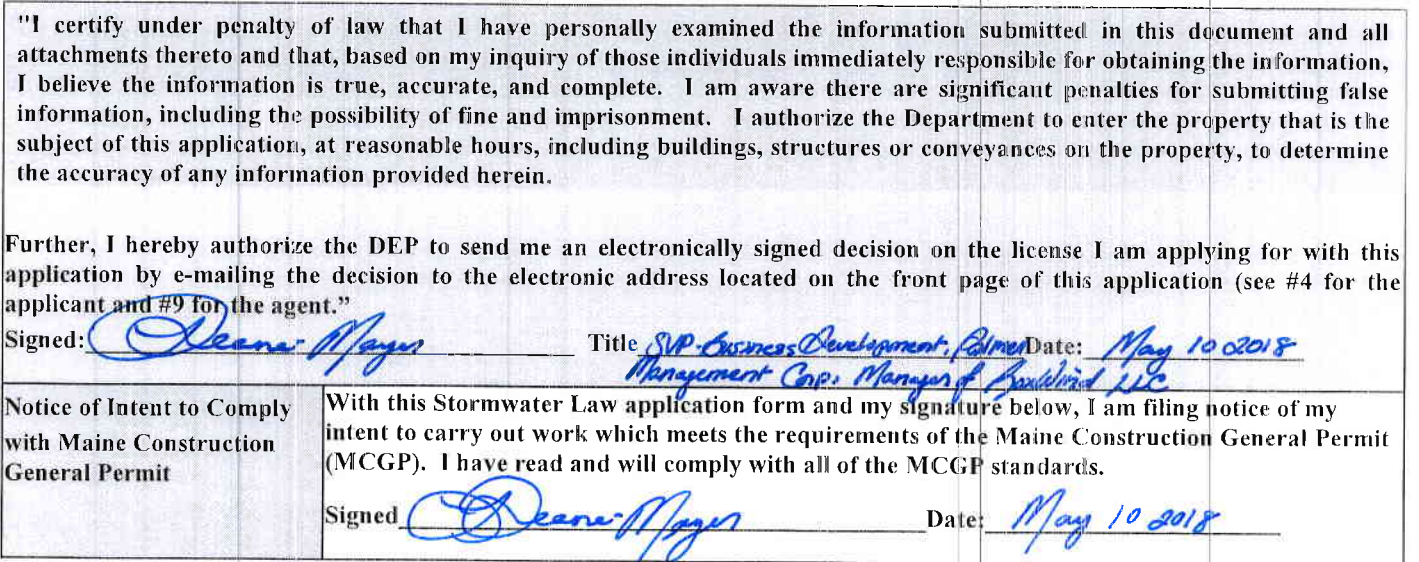 "I certify under penalty of law that I have personally examined the information submitted in this document and all
attachments thereto and that, based on my inquiry of those individuals immediately responsible for obtaining the information,
I believe the information is true, accurate, and complete. I am aware there are significant penalties for submitting false
information, including the possibility of fine and imprisonment. I authorize the Department to enter the property that is the
subject of this application, at reasonable hours, including buildings, structures or conveyances on the property, to determine
the accuracy of any information provided herein.
Further, I hereby authorize the DEP to send me an electronically signed decision on the license I am applying for with this
application by e-mailing the decision to the electronic address located on the front page of this application (see #4 for the
applicant and #9 for the agent."
Signed: Deane Mayer Title SVP-Business Development, Palmer Date: May 10 2018
Management Corp. Manager of LLC
Notice of Intent to Comply
with Maine Construction
General Permit
With this Stormwater Law application form and my signature below, I am filing notice of my
intent to carry out work which meets the requirements of the Maine Construction General Permit
(MCGP). I have read and will comply with all of the MCGP standards.
Signed Deane Mayer Date: May 10 2018